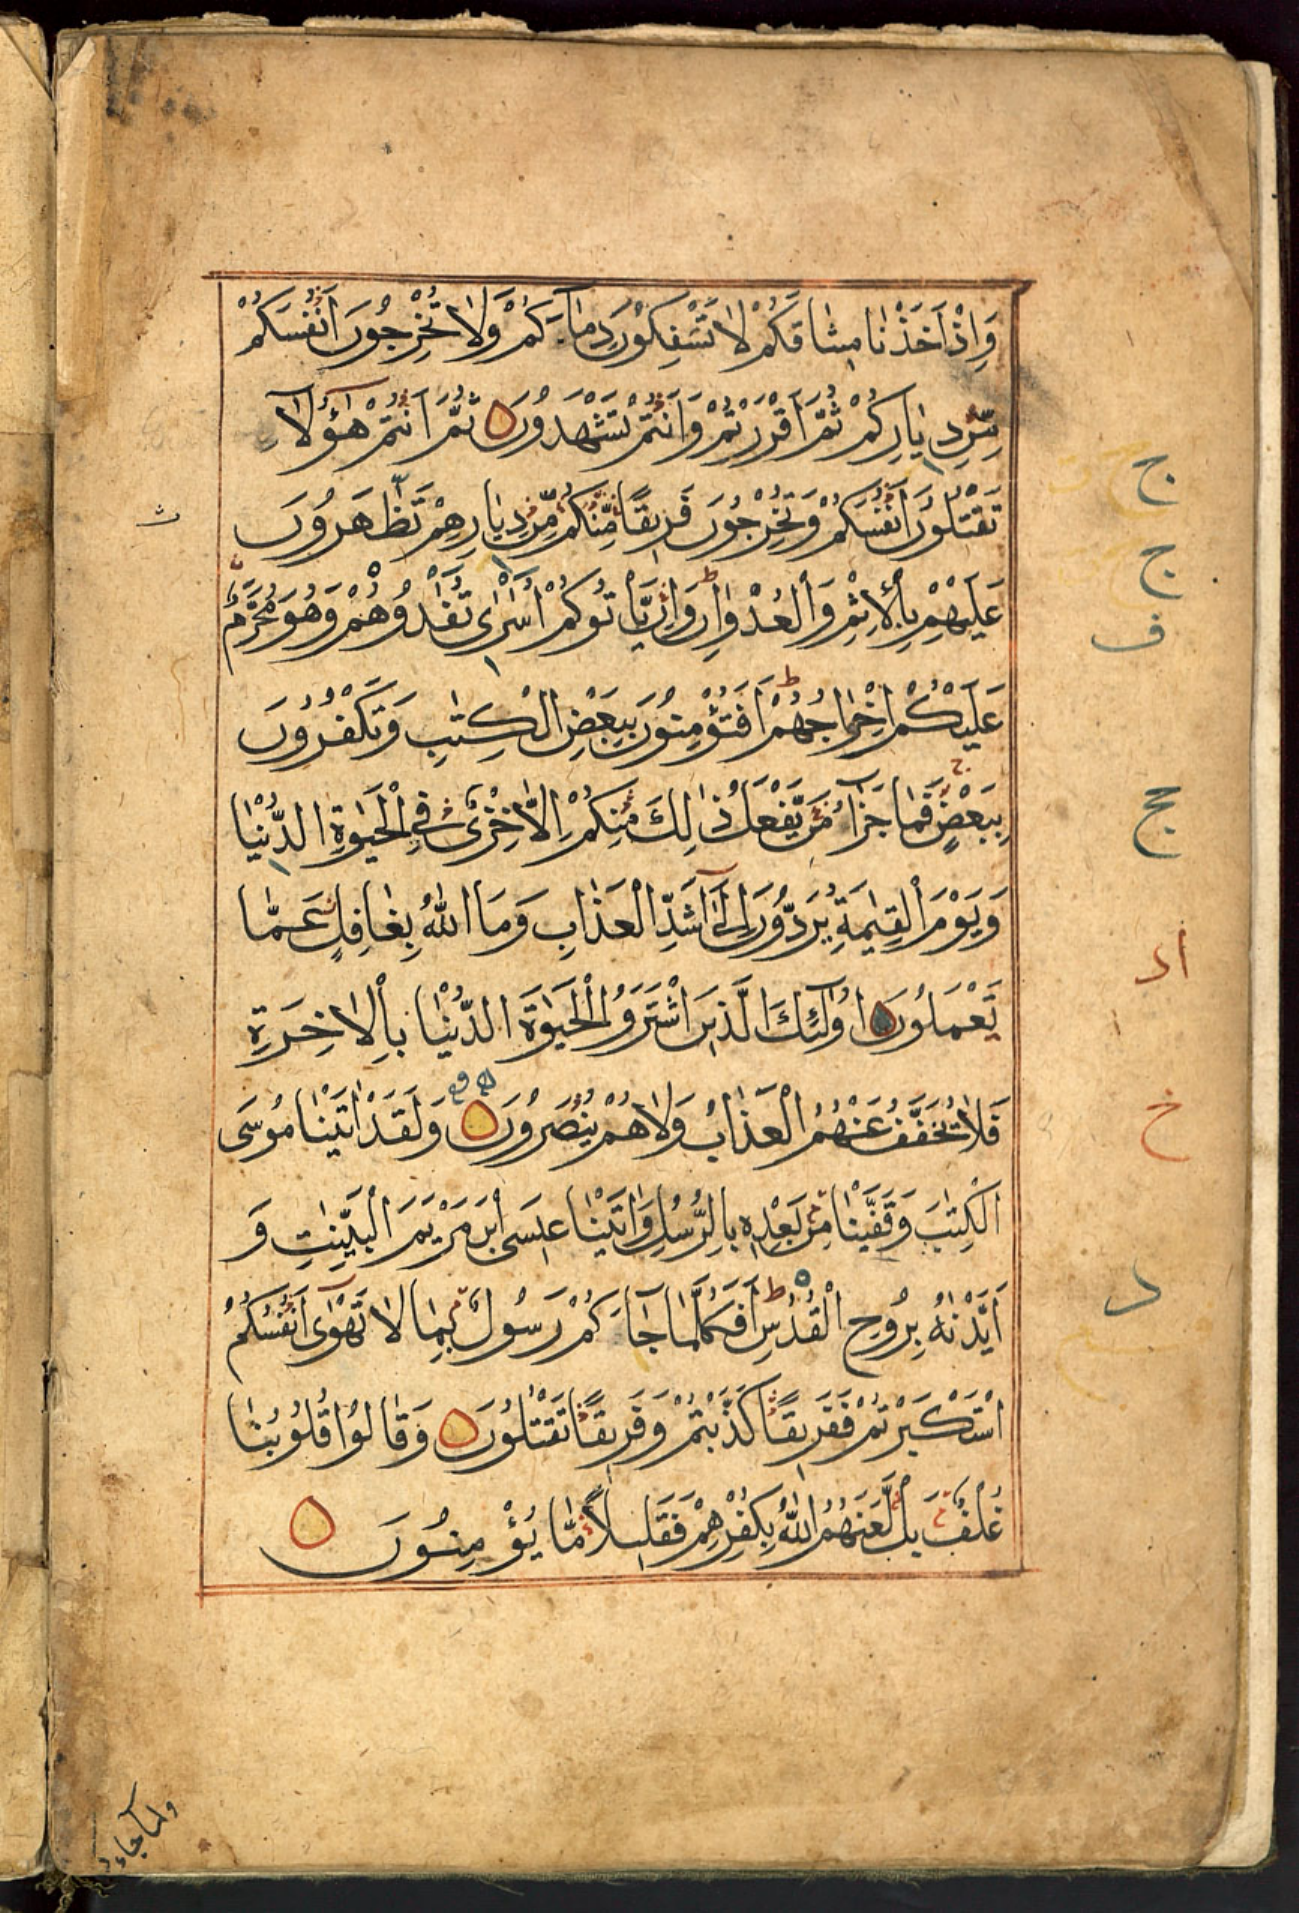 وَاِذْ اَخَذْنَا مِيثَاقَكُمْ لَا تَسْفِكُوْنَ دِمَاۤءَكُمْ وَلَا تُخْرِجُونَ اَنْفُسَكُمْ
مِّنْ دِيَارِكُمْ ثُمَّ اَقْرَرْتُمْ وَاَنْتُمْ تَشْهَدُونَ ثُمَّ اَنْتُمْ هٰٓؤُلَاۤءِ
تَقْتُلُونَ اَنْفُسَكُمْ وَتُخْرِجُونَ فَرِيقًا مِّنْكُمْ مِّنْ دِيَارِهِمْ تَظّٰهَرُونَ
عَلَيْهِمْ بِالْاِثْمِ وَالْعُدْوَانِ ط وَاِنْ يَّاْتُوكُمْ اُسٰرٰى تُفٰدُوهُمْ وَهُوَ مُحَرَّمٌ
عَلَيْكُمْ اِخْرَاجُهُمْ ط اَفَتُؤْمِنُونَ بِبَعْضِ الْكِتٰبِ وَتَكْفُرُونَ
بِبَعْضٍ ج فَمَا جَزَاۤءُ مَنْ يَّفْعَلُ ذٰلِكَ مِنْكُمْ اِلَّا خِزْىٌ فِي الْحَيٰوةِ الدُّنْيَا
وَيَوْمَ الْقِيٰمَةِ يُرَدُّونَ اِلٰٓى اَشَدِّ الْعَذَابِ وَمَا اللّٰهُ بِغَافِلٍ عَمَّا
تَعْمَلُونَ اُولٰۤئِكَ الَّذِينَ اشْتَرَوُا الْحَيٰوةَ الدُّنْيَا بِالْاٰخِرَةِ
فَلَا يُخَفَّفُ عَنْهُمُ الْعَذَابُ وَلَا هُمْ يُنْصَرُونَ وَلَقَدْ اٰتَيْنَا مُوسَى
الْكِتٰبَ وَقَفَّيْنَا مِنْ بَعْدِهِ بِالرُّسُلِ وَاٰتَيْنَا عِيسَى ابْنَ مَرْيَمَ الْبَيِّنٰتِ وَ
اَيَّدْنٰهُ بِرُوحِ الْقُدُسِ ط اَفَكُلَّمَا جَاۤءَكُمْ رَسُولٌ بِمَا لَا تَهْوٰٓى اَنْفُسُكُمُ
اسْتَكْبَرْتُمْ فَفَرِيقًا كَذَّبْتُمْ وَفَرِيقًا تَقْتُلُونَ وَقَالُوْا قُلُوبُنَا
غُلْفٌ بَلْ لَّعَنَهُمُ اللّٰهُ بِكُفْرِهِمْ فَقَلِيلًا مَّا يُؤْمِنُونَ
ج
ج
ف
حج
اد
خ
د
ث
ولما جاءهم